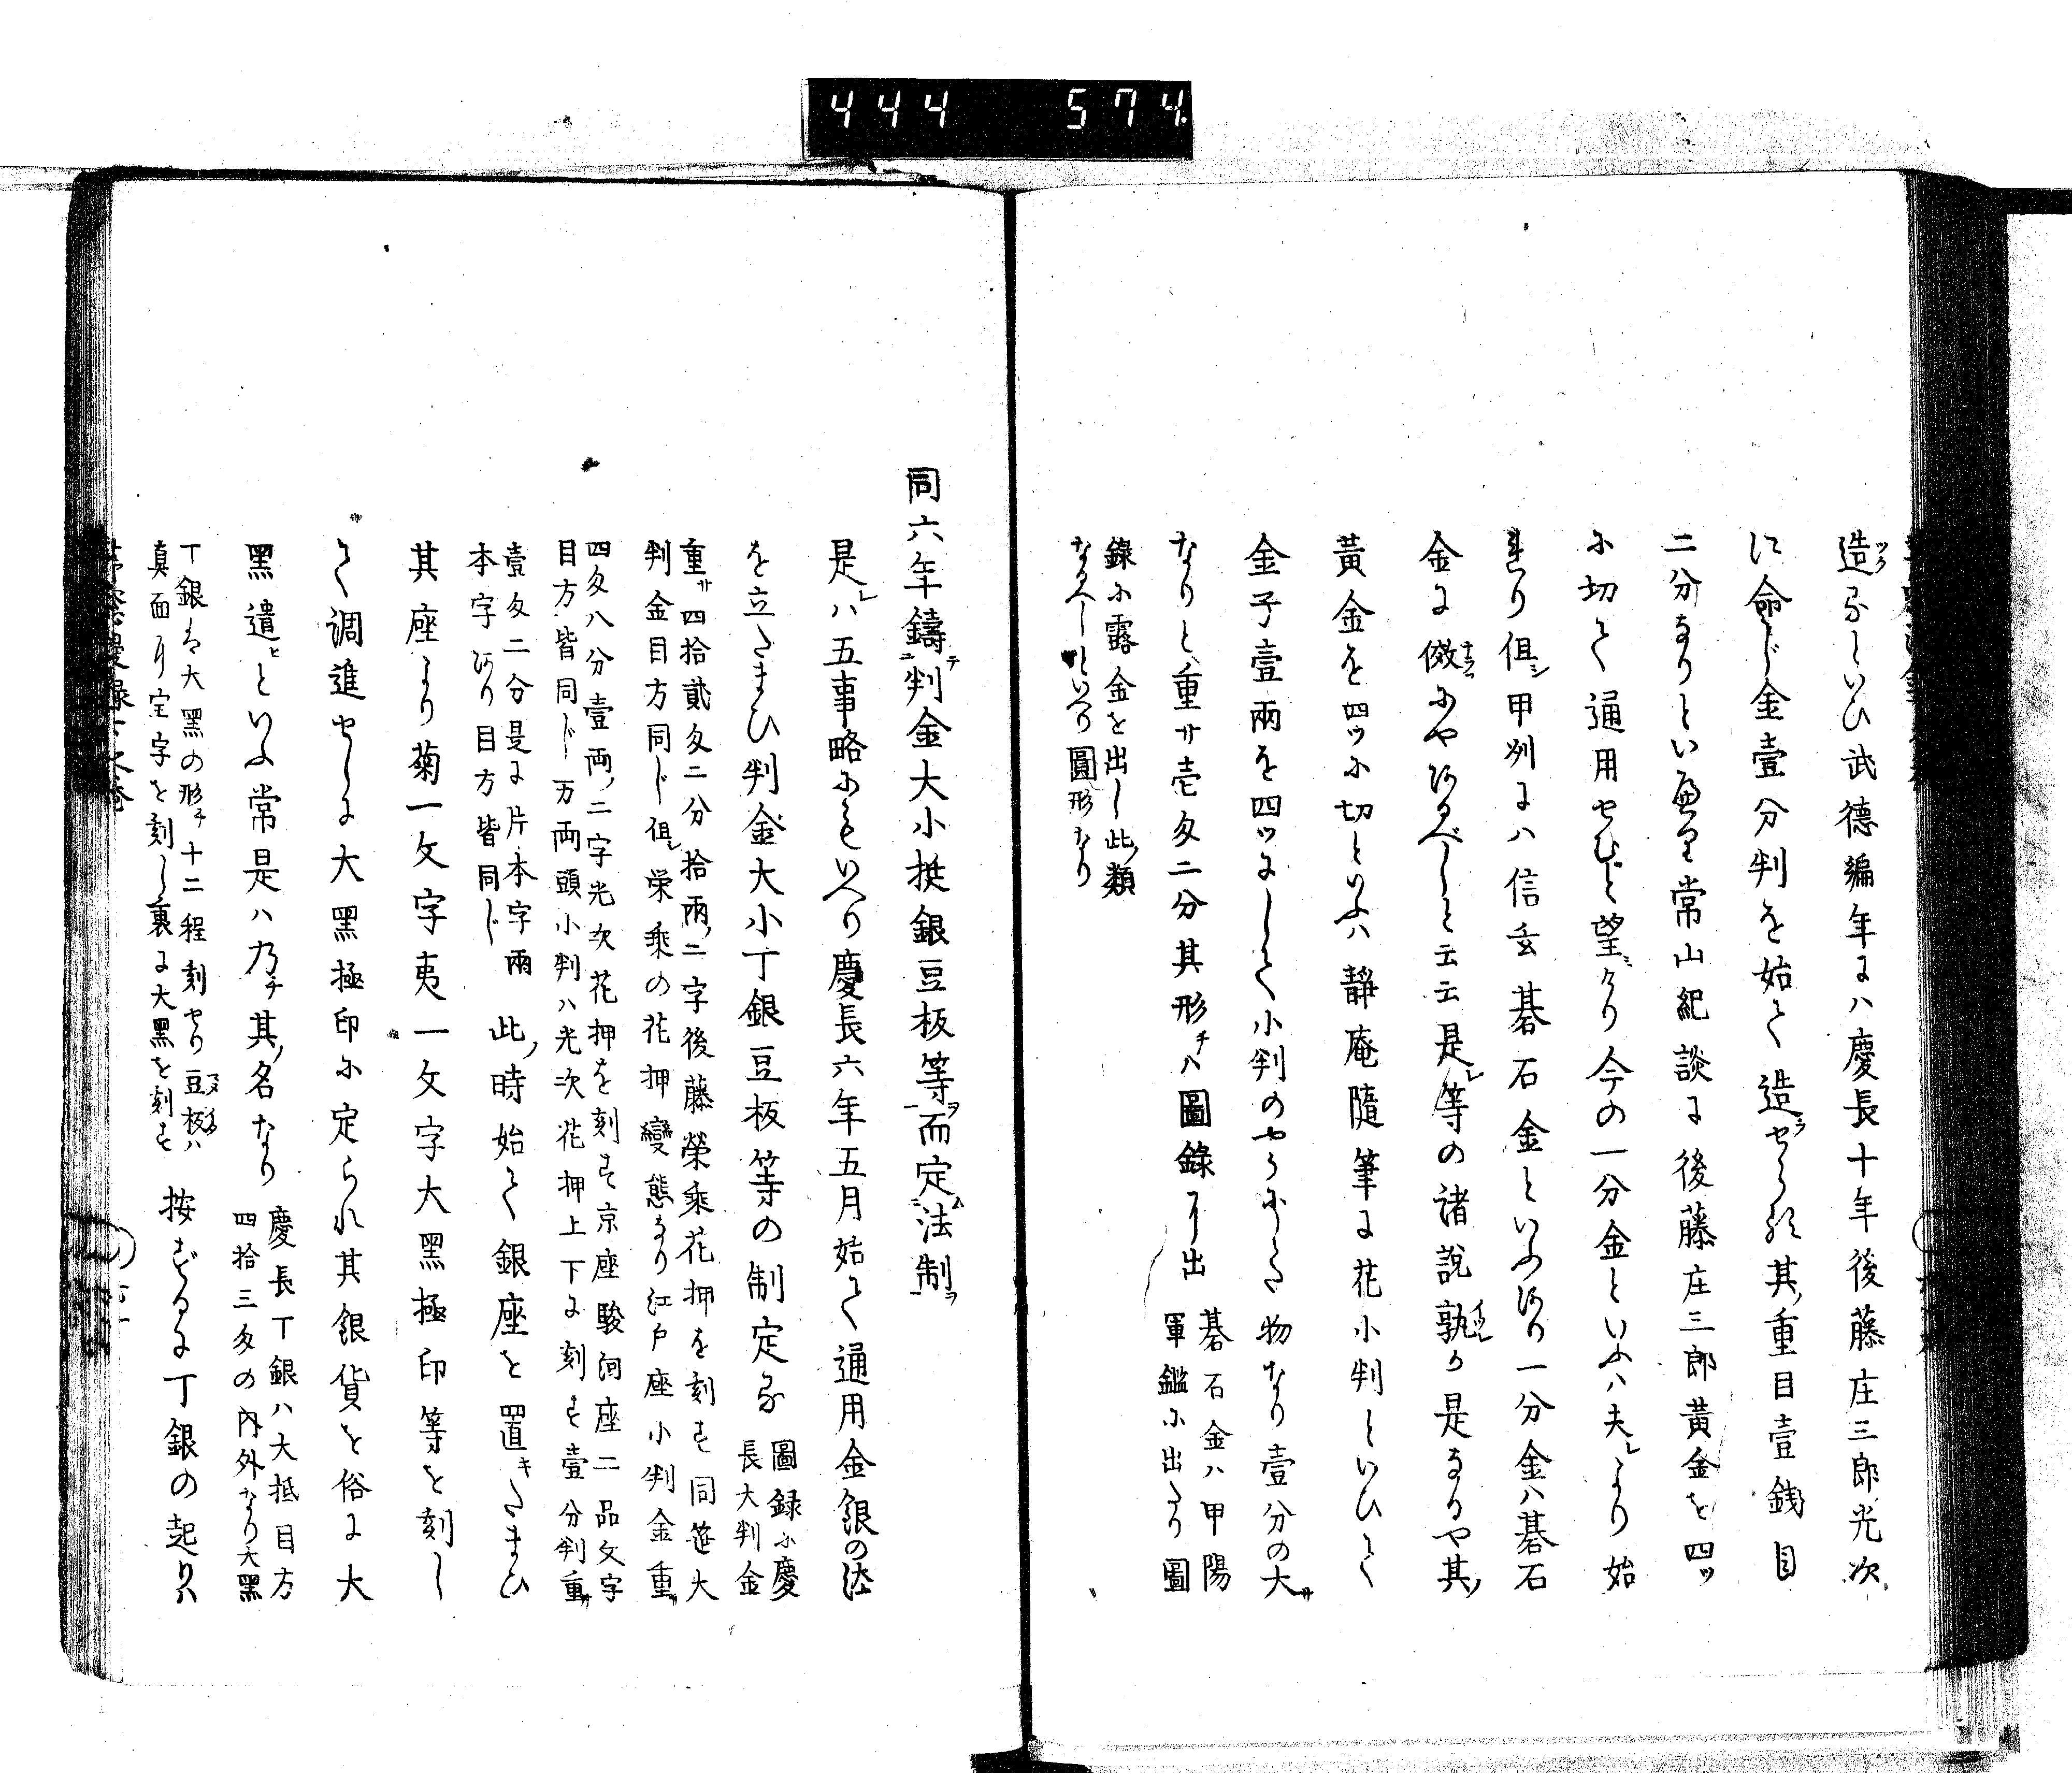 444 574.
造るといひ武徳編年にハ慶長十年後藤庄三郎光次
に命じ金壹分判を始て造せらる其重目壹銭目
二分なりといへり常山紀談に後藤庄三郎黄金を四ツ
に切て通用せむと望けり今の一分金といふハ夫より始
れり但甲州にハ信玄碁石金といふあり一分金ハ碁石
金に傚にやあるべしと云云是等の諸説孰か是なるや其
黄金を四ツに切といふハ静庵隨筆に花小判といひて
金子壹兩を四ツにして小判のやうにした物なり壹分の大サ
なりと重サ壱匁二分其形チハ圖錄に出
碁石金ハ甲陽
軍鑑に出たり圖
錄に露金を出し此類
なるべしといへり圓形なり
同六年鑄判金大小挺銀豆板等而定法制
是ハ五事略にもいへり慶長六年五月始て通用金銀の法
を立たまひ判金大小丁銀豆板等の制定る
圖録に慶
長大判金
重サ四拾貳匁二分拾兩二字後藤榮乘花押を刻す同笹大
判金目方同じ但栄乘の花押變態なり江戸座小判金重サ
四匁八分壹両二字光次花押を刻す京座駿河座二品文字
目方皆同じ万両頭小判ハ光次花押上下に刻す壹分判重サ
壹匁二分是に片本字兩
本字あり目方皆同じ
此時始て銀座を置キたまひ
其座より菊一文字夷一文字大黒極印等を刻し
て調進せしに大黒極印に定られ其銀貨を俗に大
黒遣といふ常是ハ乃チ其名なり
慶長丁銀ハ大抵目方
四拾三匁の内外なり大黒
丁銀は大黒の形チ十二程刻せり豆板ハ
真面に宝字を刻し裏に大黒を刻す
按ずるに丁銀の起りハ